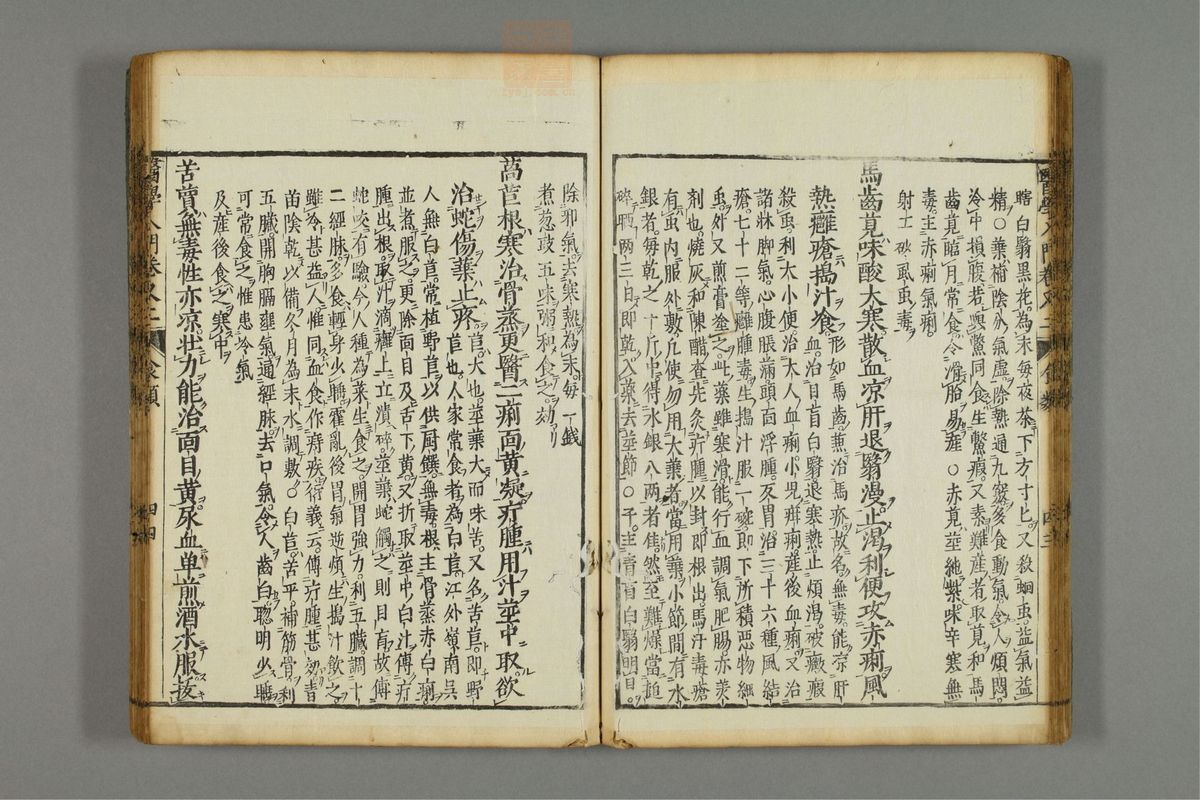 瞎白翳黑花。為末每夜茶下方寸匕又殺蛔虫益氣益
精○葉補陰分氣虛除熱通九竅多食動氣令人煩悶。
冷中損腹若與鱉同食生鱉瘕又素難產者取莧和馬
齒莧臨月常食令滑胎易產○赤莧莖純紫味辛寒無
毒主赤痢氣痢。
射工砂虱虫毒
馬齒莧味酸大寒散血凉肝退翳漫止渴利便攻赤痢風
熱癰瘡搗汁飡形如馬齒兼治馬疥故名無毒能凉肝
血治目盲白翳退寒熱止煩渴破癥瘕
殺虫利大小便治大人血痢小兒疳痢產後血痢又治
諸淋脚氣心腹脹滿頭面浮腫及胃治三十六種風結
瘡七十二等癰腫毒生搗汁服一碗即下所積惡物細
虫外又煎膏塗之此藥雖寒滑能行血調氣肥腸亦羡
劑也燒灰和陳醋查先灸疔腫以封即根出馬汗毒瘡
有虫內服外敷凡使勿用大葉者當用葉小節間有水
銀者每乾之十斤中得水銀八兩者佳然至難燥當搥
碎晒兩三日即乾入藥去莖節○子主青盲白翳明目。
除邪氣去寒熱為末每一錢
煮葱豉五味粥和食之
萵苣根寒治骨蒸更醫二痢面黃疑疔腫用汁莖中取欲
治蛇傷葉止疼苣大也莖葉大而味苦又名苦苣即野
苣也人家常食者為白苣江外嶺南吳
人無白苣常植野苣以供厨饌無毒根主骨蒸赤白痢
並煮服之更除面目及舌下黃又折取莖中白汁傅疔
腫出根取汁滴癰上立潰碎莖葉蛇觸之則目盲故傅
蛇咬有驗今人種為菜生食之開胃強力利五臟調十
二經脉多食輕身少睡霍亂後胃氣逆煩生搗汁飲之
雖冷甚益人惟同血食作痔疾衍義云傅疔腫甚效青
苗陰乾以備冬月為末水調敷○白苣苦平補筋骨利
五臟開胸膈壅氣通經脉去口氣令人齒白聰明少睡
可常食之惟患冷氣
及產後食之寒中
苦蕒無毒性亦凉壯力能治面目黃尿血单煎酒水服拔
醫學入門卷又二
食類
四三
醫學入門卷又二
食類
四四
zysj.com.cn